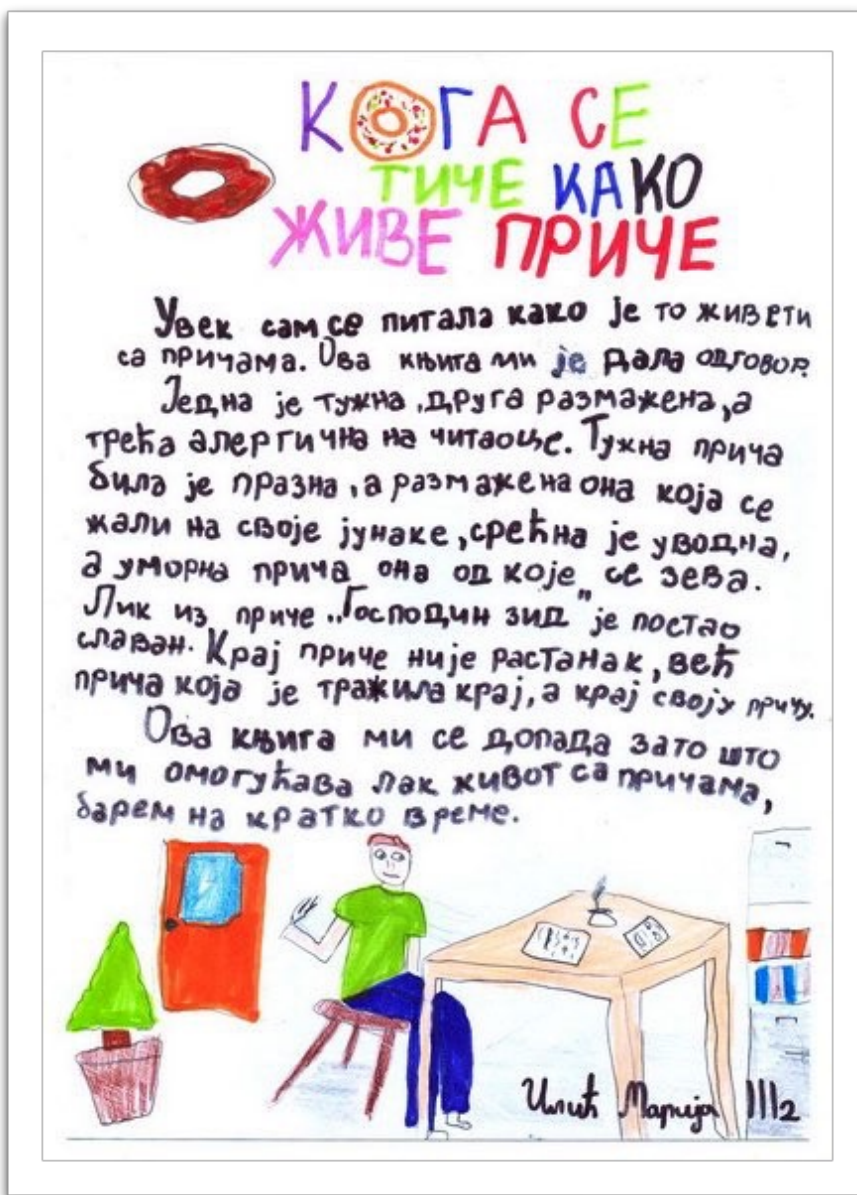 КОГА СЕ
ТИЧЕ КАКО
ЖИВЕ ПРИЧЕ
Увек сам се питала како је то живети
са причама. Ова књига ми је дала одговор.
Једна је тужна, друга размажена, а
трећа алергична на читаоце. Тужна прича
била је празна, а размажена она која се
жали на своје јунаке, срећна је уводна,
а уморна прича она од које се зева.
Лик из приче „Господин зид" је постао
славан. Крај приче није растанак, већ
прича која је тражила крај, а крај своју причу.
Ова књига ми се допада зато што
ми омогућава лак живот са причама,
барем на кратко време.
Илић Марија III2